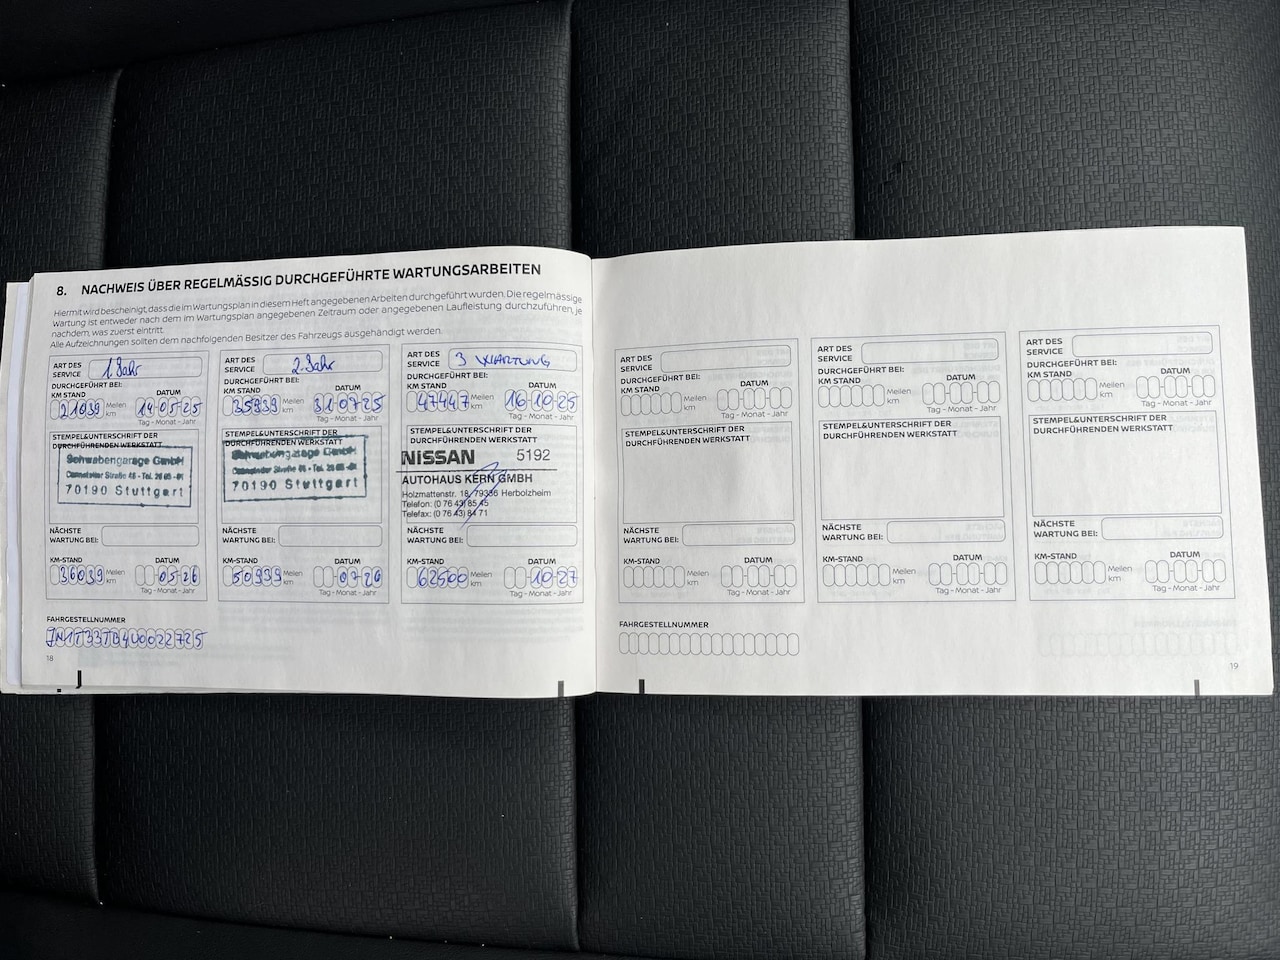 8. NACHWEIS ÜBER REGELMÄSSIG DURCHGEFÜHRTE WARTUNGSARBEITEN
Hiermit wird bescheinigt, dass die im Wartungsplan in diesem Heft angegebenen Arbeiten durchgeführt wurden. Die regelmässige
Wartung ist entweder nach dem im Wartungsplan angegebenen Zeitraum oder angegebenen Laufleistung durchzuführen, je
nachdem, was zuerst eintritt.
Alle Aufzeichnungen sollten dem nachfolgenden Besitzer des Fahrzeugs ausgehändigt werden.
ART DES
SERVICE
1. Jahr
DURCHGEFÜHRT BEI:
KM STAND DATUM
21039 Meilen km 14-05-25
Tag - Monat - Jahr
STEMPEL&UNTERSCHRIFT DER
DURCHFÜHRENDEN WERKSTATT
Schwabengarage GmbH
70190 Stuttgart
NÄCHSTE
WARTUNG BEI:
KM-STAND DATUM
36039 Meilen km 05-26
Tag - Monat - Jahr
ART DES
SERVICE
2. Jahr
DURCHGEFÜHRT BEI:
KM STAND DATUM
35939 Meilen km 31-07-25
Tag - Monat - Jahr
STEMPEL&UNTERSCHRIFT DER
DURCHFÜHRENDEN WERKSTATT
Schwabengarage GmbH
70190 Stuttgart
NÄCHSTE
WARTUNG BEI:
KM-STAND DATUM
50939 Meilen km 07-26
Tag - Monat - Jahr
ART DES
SERVICE
3 WARTUNG
DURCHGEFÜHRT BEI:
KM STAND DATUM
47447 Meilen km 16-10-25
Tag - Monat - Jahr
STEMPEL&UNTERSCHRIFT DER
DURCHFÜHRENDEN WERKSTATT
NISSAN 5192
AUTOHAUS KERN GMBH
Holzmattenstr. 18, 79336 Herbolzheim
Telefon: (0 76 43) 85 45
Telefax: (0 76 43) 84 71
NÄCHSTE
WARTUNG BEI:
KM-STAND DATUM
62500 Meilen km 10-27
Tag - Monat - Jahr
FAHRGESTELLNUMMER
JN1T33TB4U0022725
18
ART DES
SERVICE
DURCHGEFÜHRT BEI:
KM STAND DATUM
Meilen
km
Tag - Monat - Jahr
STEMPEL&UNTERSCHRIFT DER
DURCHFÜHRENDEN WERKSTATT
NÄCHSTE
WARTUNG BEI:
KM-STAND DATUM
Meilen
km
Tag - Monat - Jahr
ART DES
SERVICE
DURCHGEFÜHRT BEI:
KM STAND DATUM
Meilen
km
Tag - Monat - Jahr
STEMPEL&UNTERSCHRIFT DER
DURCHFÜHRENDEN WERKSTATT
NÄCHSTE
WARTUNG BEI:
KM-STAND DATUM
Meilen
km
Tag - Monat - Jahr
ART DES
SERVICE
DURCHGEFÜHRT BEI:
KM STAND DATUM
Meilen
km
Tag - Monat - Jahr
STEMPEL&UNTERSCHRIFT DER
DURCHFÜHRENDEN WERKSTATT
NÄCHSTE
WARTUNG BEI:
KM-STAND DATUM
Meilen
km
Tag - Monat - Jahr
FAHRGESTELLNUMMER
19